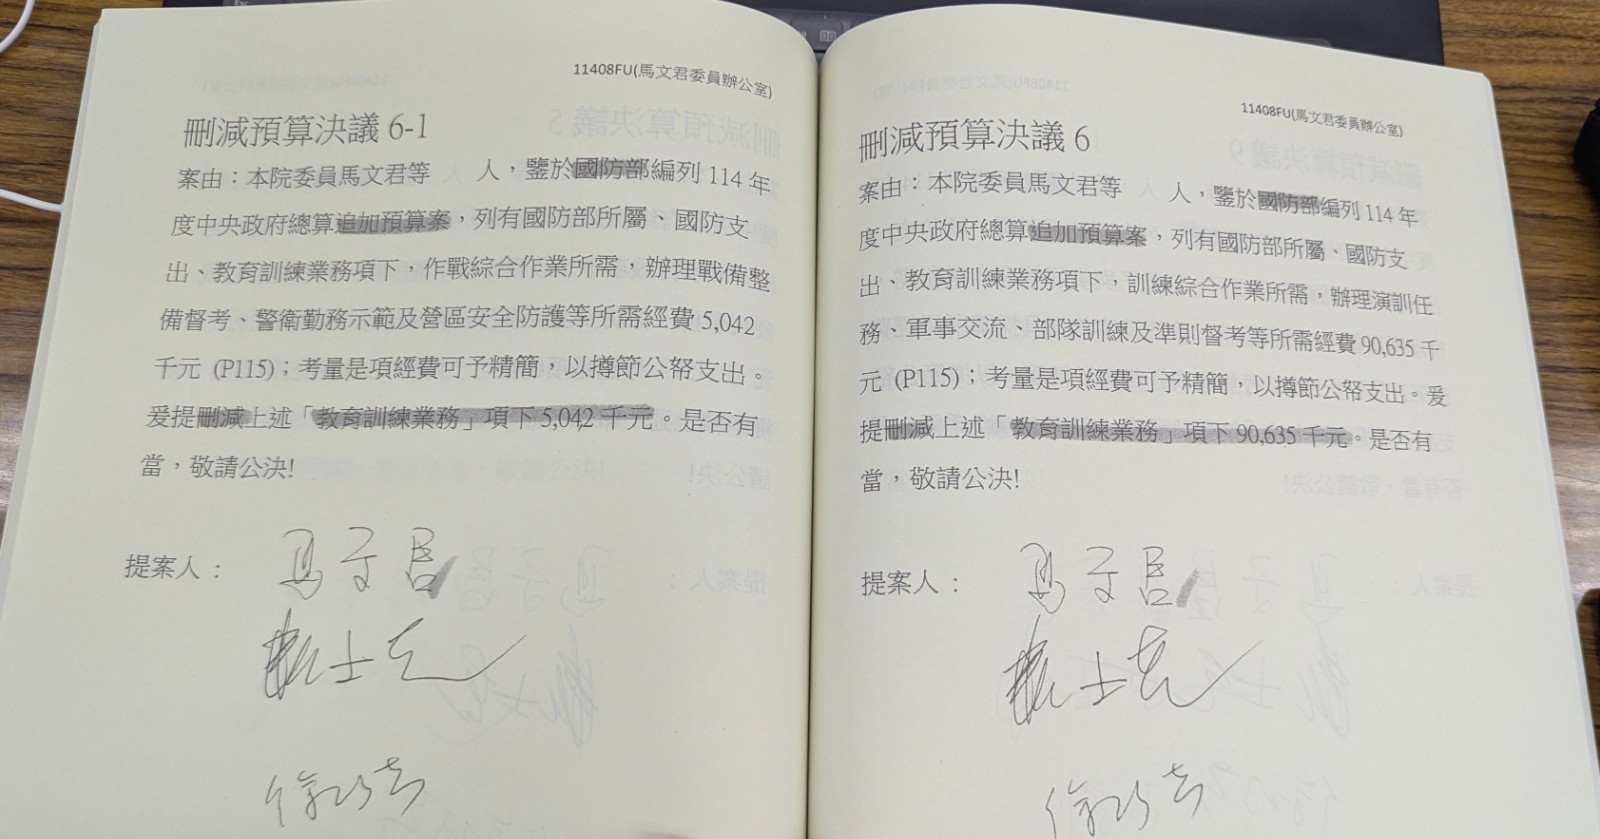 11408FU(馬文君委員辦公室)
刪減預算決議 6-1
案由：本院委員馬文君等　　人，鑒於國防部編列 114 年
度中央政府總算追加預算案，列有國防部所屬、國防支
出、教育訓練業務項下，作戰綜合作業所需，辦理戰備整
備督考、警衛勤務示範及營區安全防護等所需經費 5,042
千元 (P115)；考量是項經費可予精簡，以撙節公帑支出。
爰提刪減上述「教育訓練業務」項下 5,042 千元。是否有
當，敬請公決!
提案人：
馬文君
賴士葆
徐巧芯
11408FU(馬文君委員辦公室)
刪減預算決議 6
案由：本院委員馬文君等　　人，鑒於國防部編列 114 年
度中央政府總算追加預算案，列有國防部所屬、國防支
出、教育訓練業務項下，訓練綜合作業所需，辦理演訓任
務、軍事交流、部隊訓練及準則督考等所需經費 90,635 千
元 (P115)；考量是項經費可予精簡，以撙節公帑支出。爰
提刪減上述「教育訓練業務」項下 90,635 千元。是否有
當，敬請公決!
提案人：
馬文君
賴士葆
徐巧芯